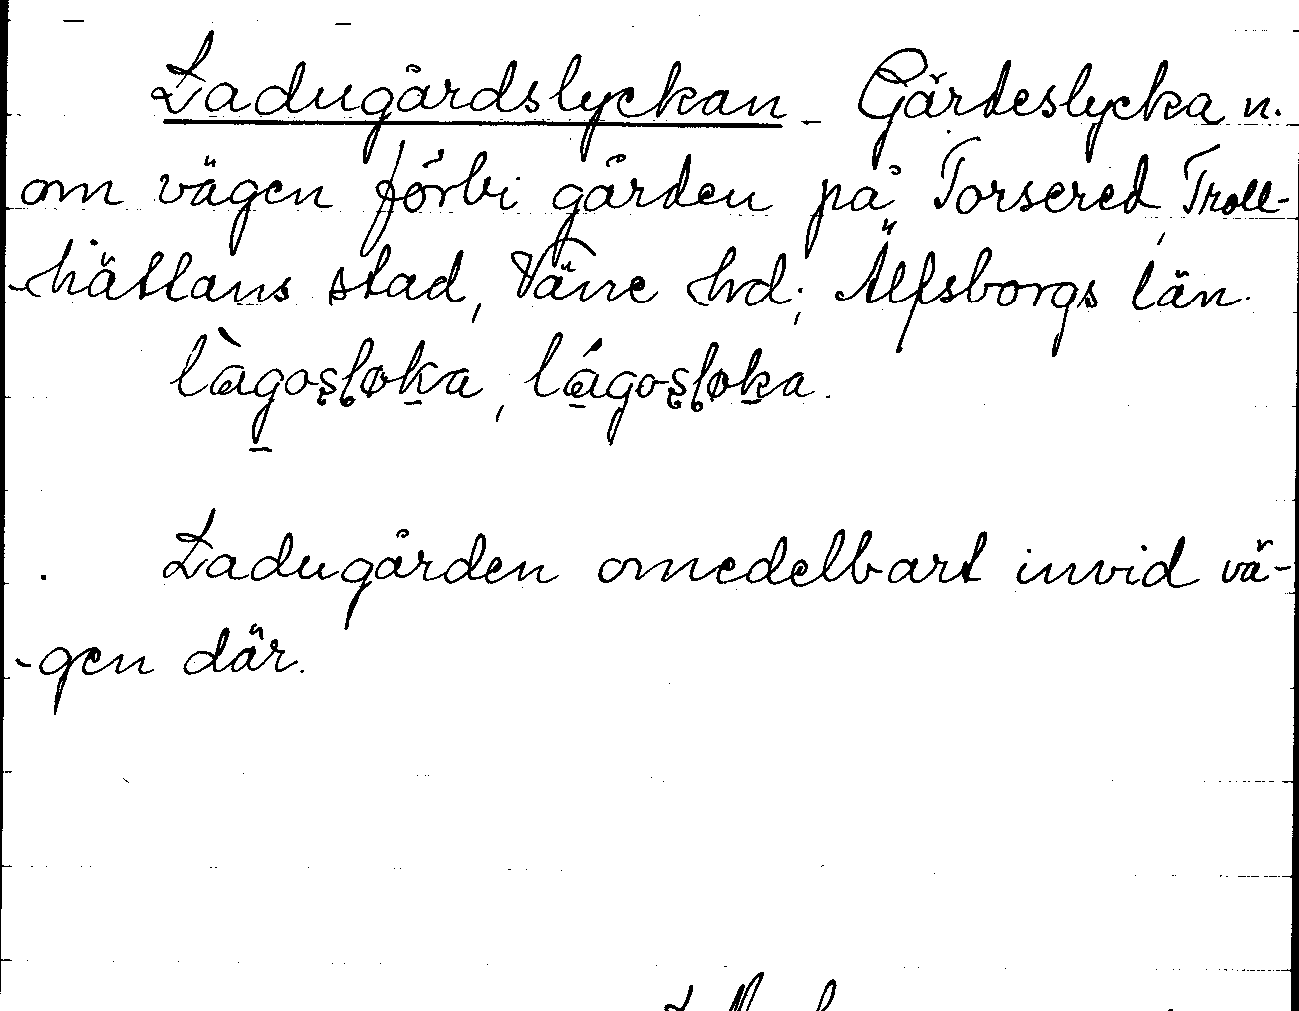 Ladugårdslyckan – Gärdeslycka n.
om vägen förbi gården på Torsered, Troll-
-hättans stad, Väne hd; Älfsborgs län.
làgosloka, lágosloka.
Ladugården omedelbart invid vä-
-gen där.